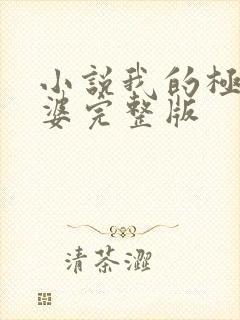 小説我的極
婆完整版
清茶澀